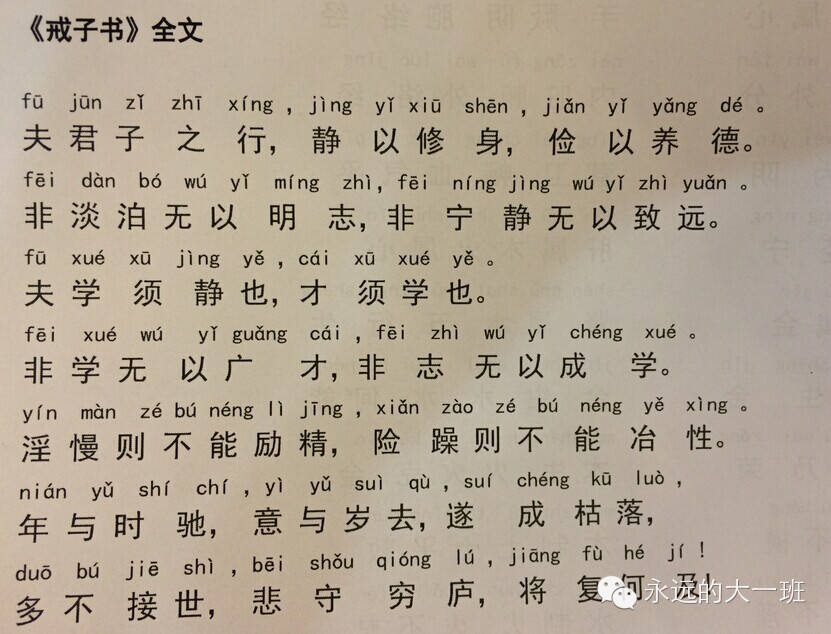 《戒子书》全文
fū jūn zǐ zhī xíng，jìng yǐ xiū shēn，jiǎn yǐ yǎng dé。
夫君子之行，静以修身，俭以养德。
fēi dàn bó wú yǐ míng zhì，fēi níng jìng wú yǐ zhì yuǎn。
非淡泊无以明志，非宁静无以致远。
fū xué xū jìng yě，cái xū xué yě。
夫学须静也，才须学也。
fēi xué wú yǐ guǎng cái，fēi zhì wú yǐ chéng xué。
非学无以广才，非志无以成学。
yín màn zé bú néng lì jīng，xiǎn zào zé bú néng yě xìng。
淫慢则不能励精，险躁则不能冶性。
nián yǔ shí chí，yì yǔ suì qù，suí chéng kū luò，
年与时驰，意与岁去，遂成枯落，
duō bú jiē shì，bēi shǒu qióng lú，jiāng fù hé jí！
多不接世，悲守穷庐，将复何及！
永远的大一班